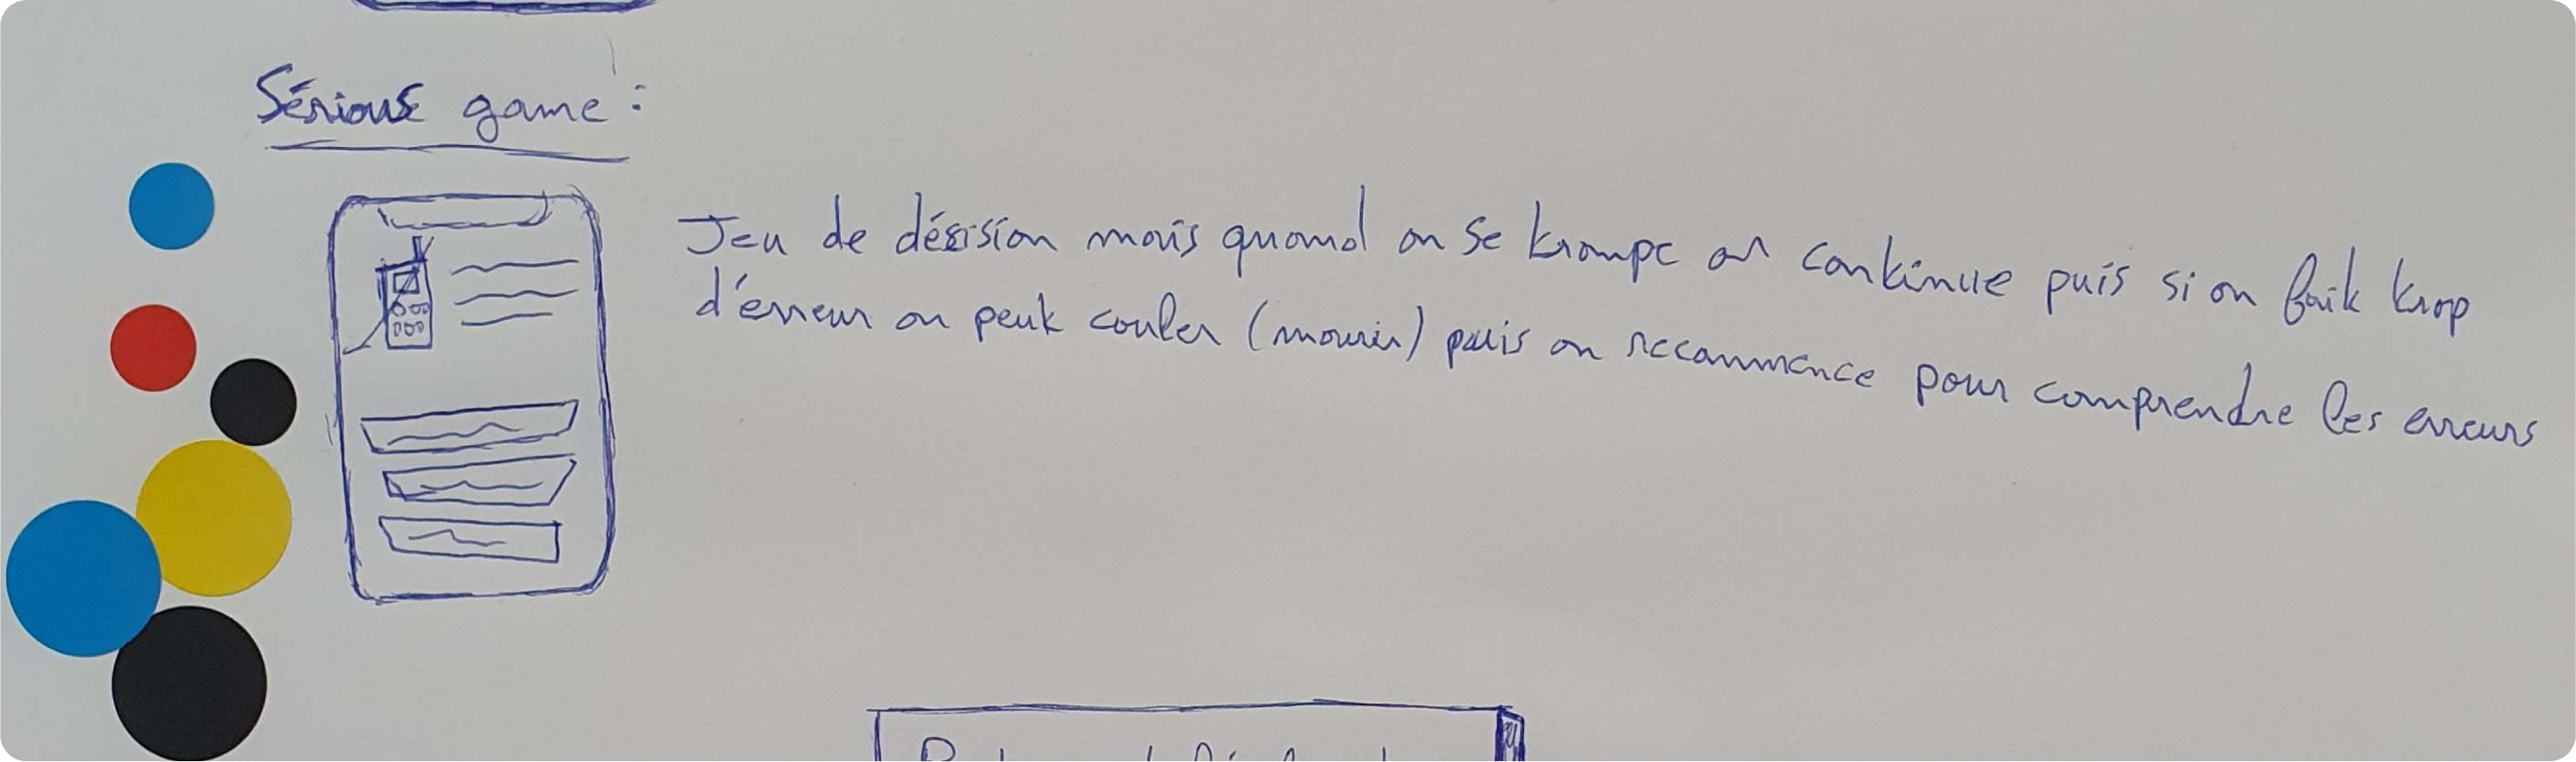 Sérious game :
Jeu de désision mais quand on se trompe on continue puis si on fait trop
d'erreur on peut couler (mourir) puis on recommence pour comprendre les erreurs